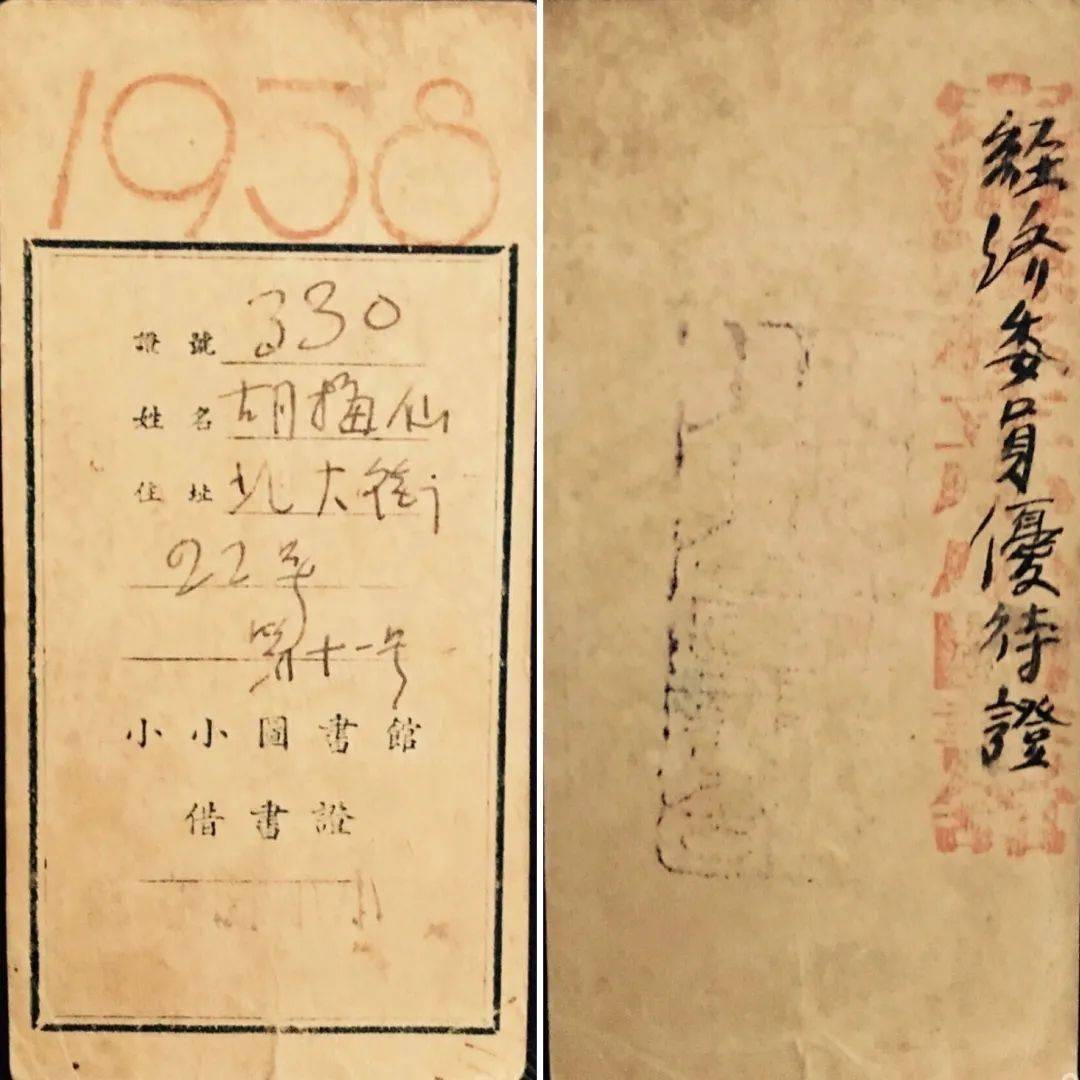 1958
證號 330
姓名 胡梅仙
住址 北大街
22号
第十一号
小小圖書館
借書證
経济委員優待證